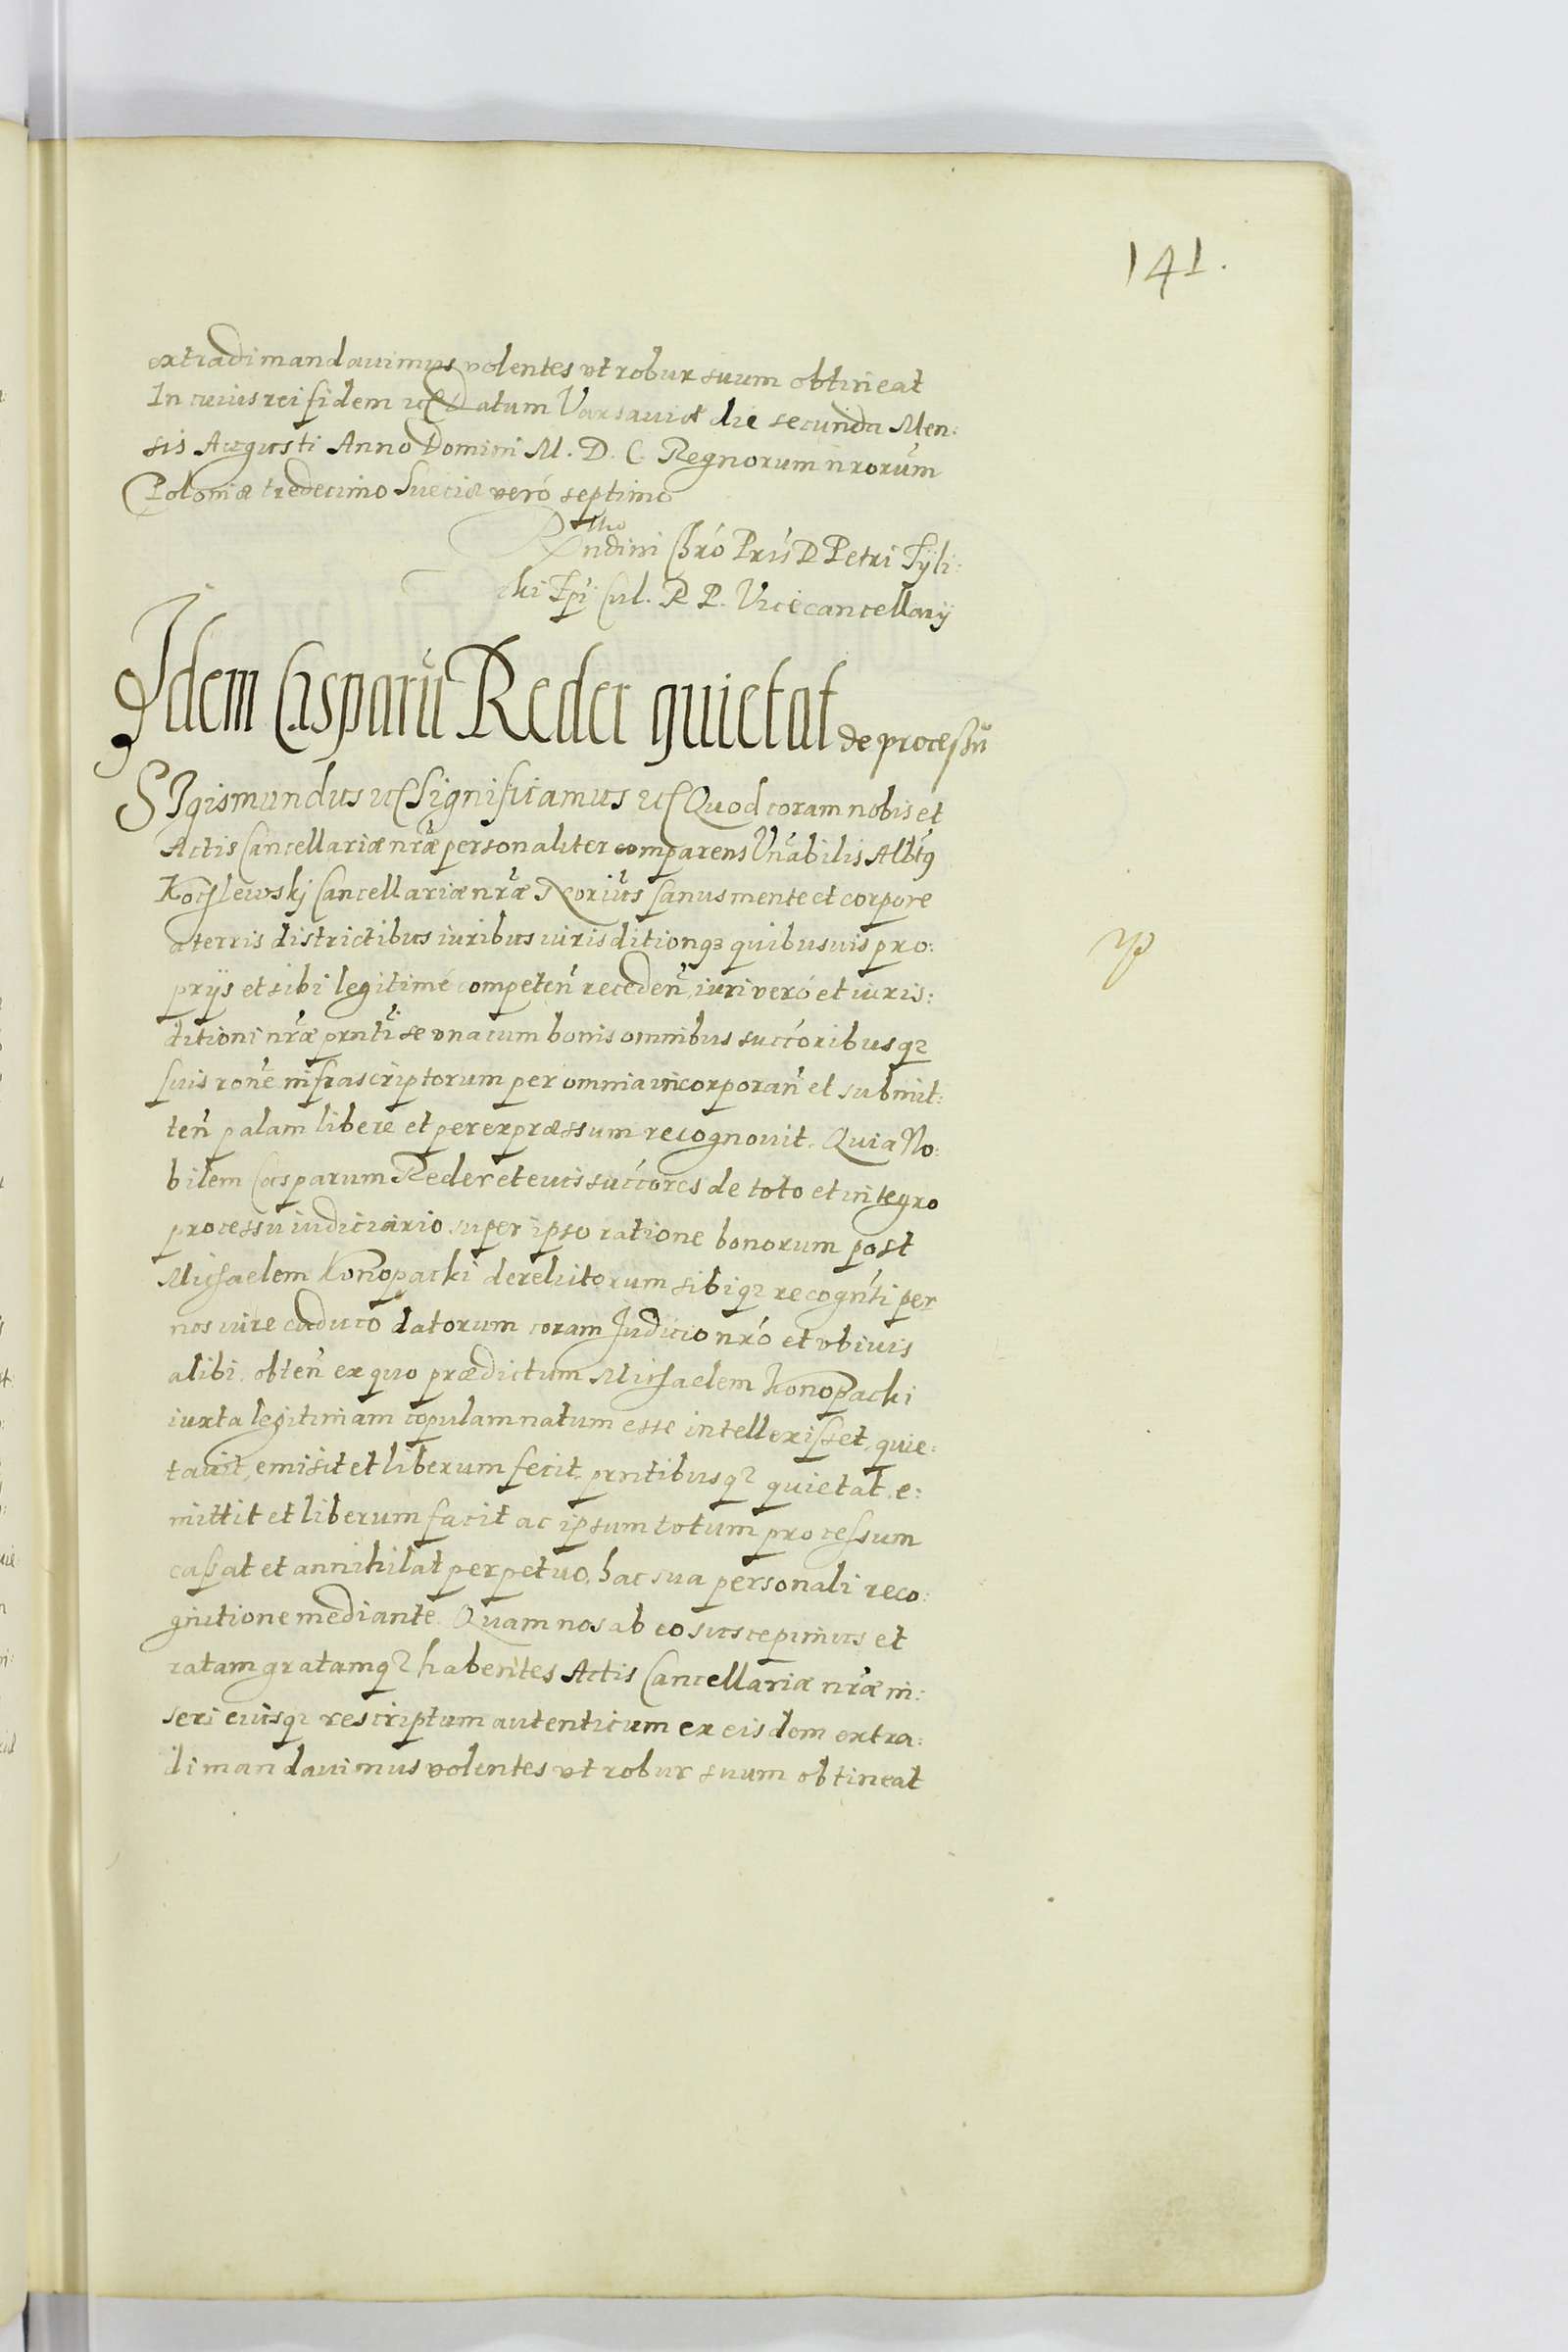 141.
extradi mandauimus volentes vt robur suum obtineat
In cuius rei fidem etc Datum Varsauiæ die secunda Men:
sis Augusti Anno Domini M. D. C. Regnorum nrorum
Poloniæ tredecimo Sueciæ veró septimo
Rndini Chró Pris D Petri Tyli:
cki Epi Cul. R. P. Vicecancellarij
Idem Casparū Reder quietat de processu
SIgismundus etc Significamus etc Quod coram nobis et
Actis Cancellariæ nræ personaliter comparens Vnabilis Albtg
Kochlewskj Cancellariæ nræ Norius sanus mente et corpore
a terris districtibus iuribus iurisditionq3 quibusuis pro:
prijs et sibi legitimé competen receden, iuri veró et iuris:
ditioni nræ prnti se vna cum bonis omnibus succoribusq3
suis rone infrascriptorum per omnia incorporan et submit:
ten palam libere et per expræssum recognouit. Quia No:
bilem Casparum Reder et eius succores de toto et integro
processu iudiciario super ipso ratione bonorum post
Michaelem Konopacki derelictorum sibiq3 recognti per
nos iure caduco datorum coram Judicio nró et vbiuis
alibi obten ex quo prædictum Michaelem Konopacki
iuxta legitimam copulam natum esse intellexisset, quie:
tauit, emisit et liberum fecit prntibusq3 quietat, e:
mittit et liberum facit ac ipsum totum processum
cassat et annihilat perpetuo, hac sua personali reco:
gnitione mediante. Quam nos ab eo suscepimus et
ratam gratamq3 habentes Actis Cancellariæ nræ in:
seri eiusq3 rescriptum autenticum ex eisdem extra:
di mandauimus volentes vt robur suum obtineat